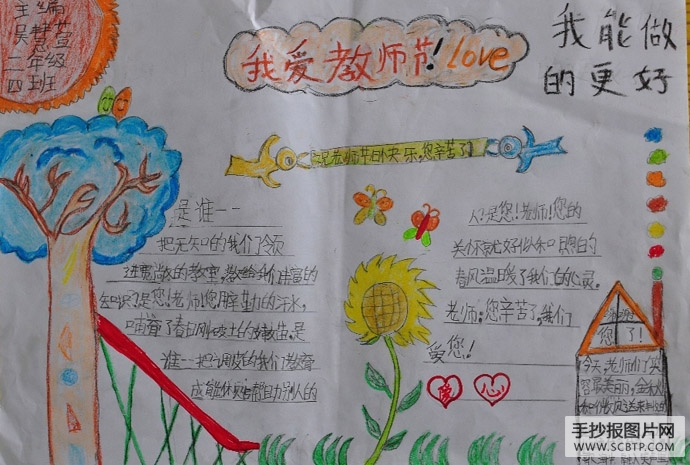 主编
吴梦萱
二年级
四班
我爱教师节!love
我能做
的更好
祝老师节日快乐,您辛苦了!
是谁——
把无知的我们领
进宽敞的教室,教给我们丰富的
知识?是您!老师!您用辛勤的汗水,
哺育了春日刚破土的嫩苗。是
谁——把调皮的我们教育
成能体贴帮助别人的
人?是您!老师!您的
关怀就好似和煦的
春风温暖了我们的心灵。
老师:您辛苦了,我们
爱您!
爱 心
您
了!
今天,老师们笑
容最美丽,金秋
手抄报图片网
WWW.SCBTP.COM